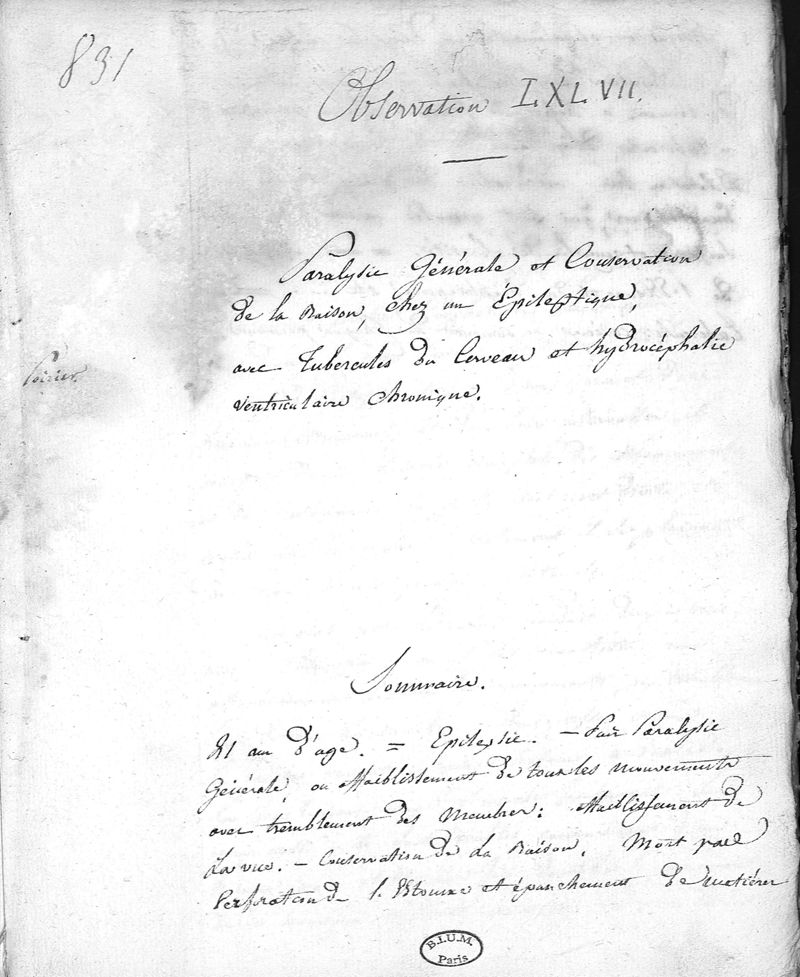 831
Observation LXLVII.
Paralysie Générale et Conservation
de la Raison, chez un Épileptique,
avec Tubercules du Cerveau et hydrocéphalie
ventriculaire chronique.
Poirier
Sommaire.
21 ans d'age. = Epilepsie. — Puis Paralysie
Générale, ou affaiblissement de tous les mouvements
avec tremblement des Membres: affaiblissement de
la vue. — Conservation de la Raison. Mort par
Perforation de l'Estomac et épanchement de matières
B.I.U.M.
Paris